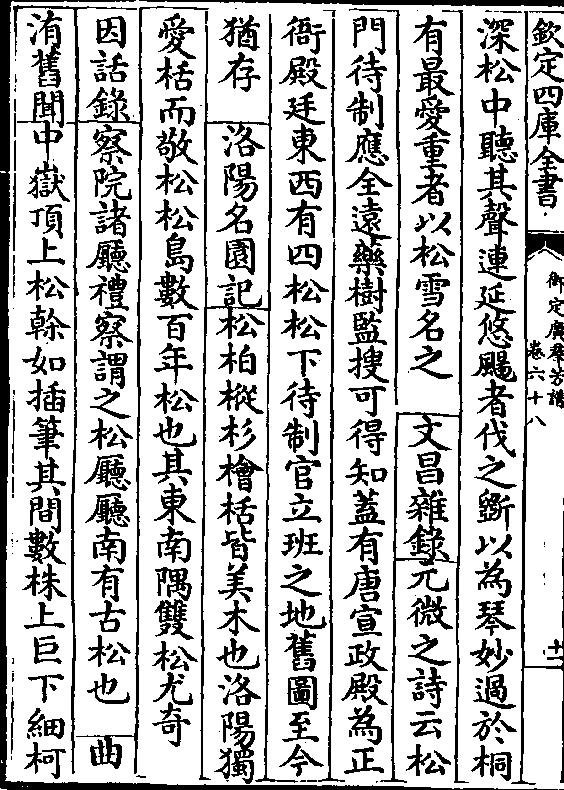 欽定四庫全書
御定廣羣芳譜
卷六十八
十二
深松中聽其聲連延悠颺者伐之斵以為琴妙過於桐
有最愛重者以松雪名之 文昌雜錄元微之詩云松
門待制應全遠藥樹監搜可得知蓋有唐宣政殿為正
衙殿廷東西有四松松下待制官立班之地舊圖至今
猶存 洛陽名園記松柏樅杉檜栝皆美木也洛陽獨
愛栝而敬松松島數百年松也其東南隅雙松尤奇
因話錄察院諸廳禮察謂之松廳廳南有古松也 曲
洧舊聞中嶽頂上松榦如插筆其間數株上巨下細柯